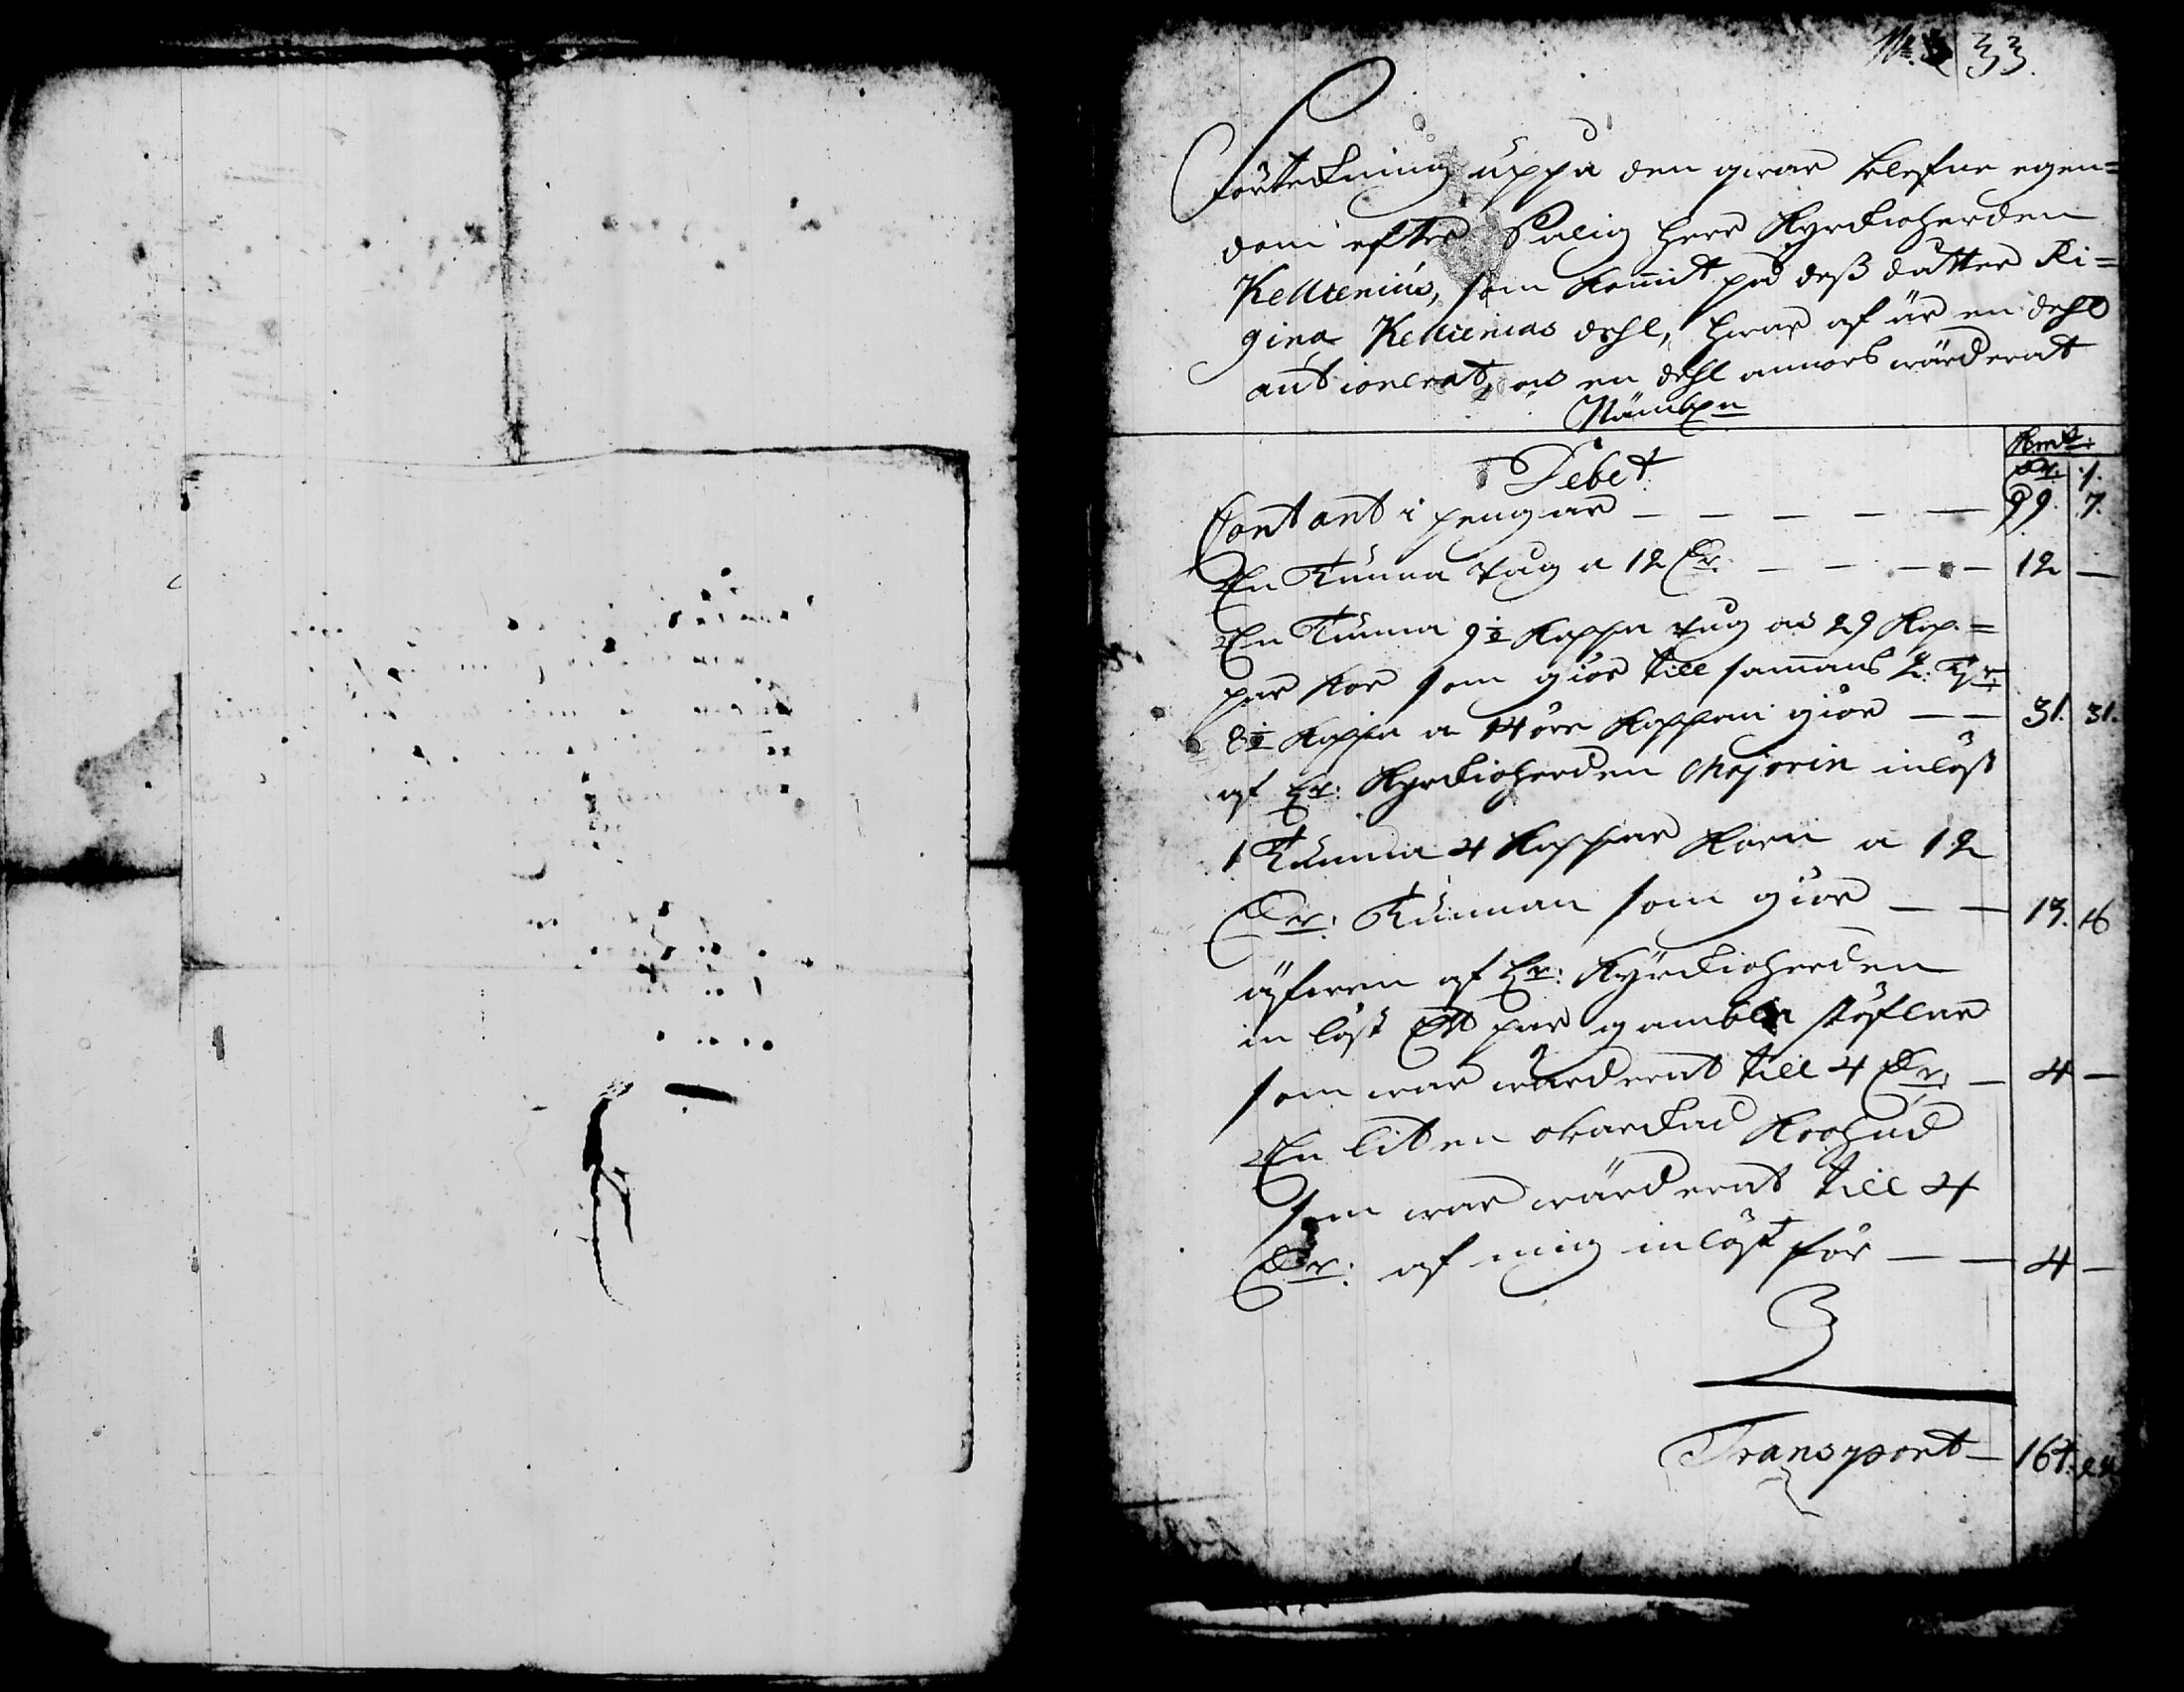 No. 33.
Förteckning uppå den qwar blefne egen=
dom efter Salig herr Kyrckioherden
Kellienius, som kommit på dess dotter Ri=
gina Kellienias dehl, hwar af är en dehl
autionerat, en dehl annors wärderat
Nämbl:n
Kmt:
Debet
Dr: /.
Contant i pengar — — — — — 99. 7.
En Tunna rug a 12 Dr: — — — — 12 —
En Tunna 9½ kappa rug 29 kap=
par som giör till sammans 2: T:r
8½ kappa a 14 öre kappan giör — — 31. 31.
af Hr: Kyrckioherden Majorin inlöst
1 Tunna 4 kappar korn a 12
Dr: Tunnan som giör — — 13. 16
äfwen af Hr: Kyrckioherden
in löst Ett par gambla stöflar
som war wärderat till 4 Dr: — 4 —
En liten obarckad kohud
som war wärderat till 4
Dr: af mig inlöst för — — 4 —
Transport — 164.